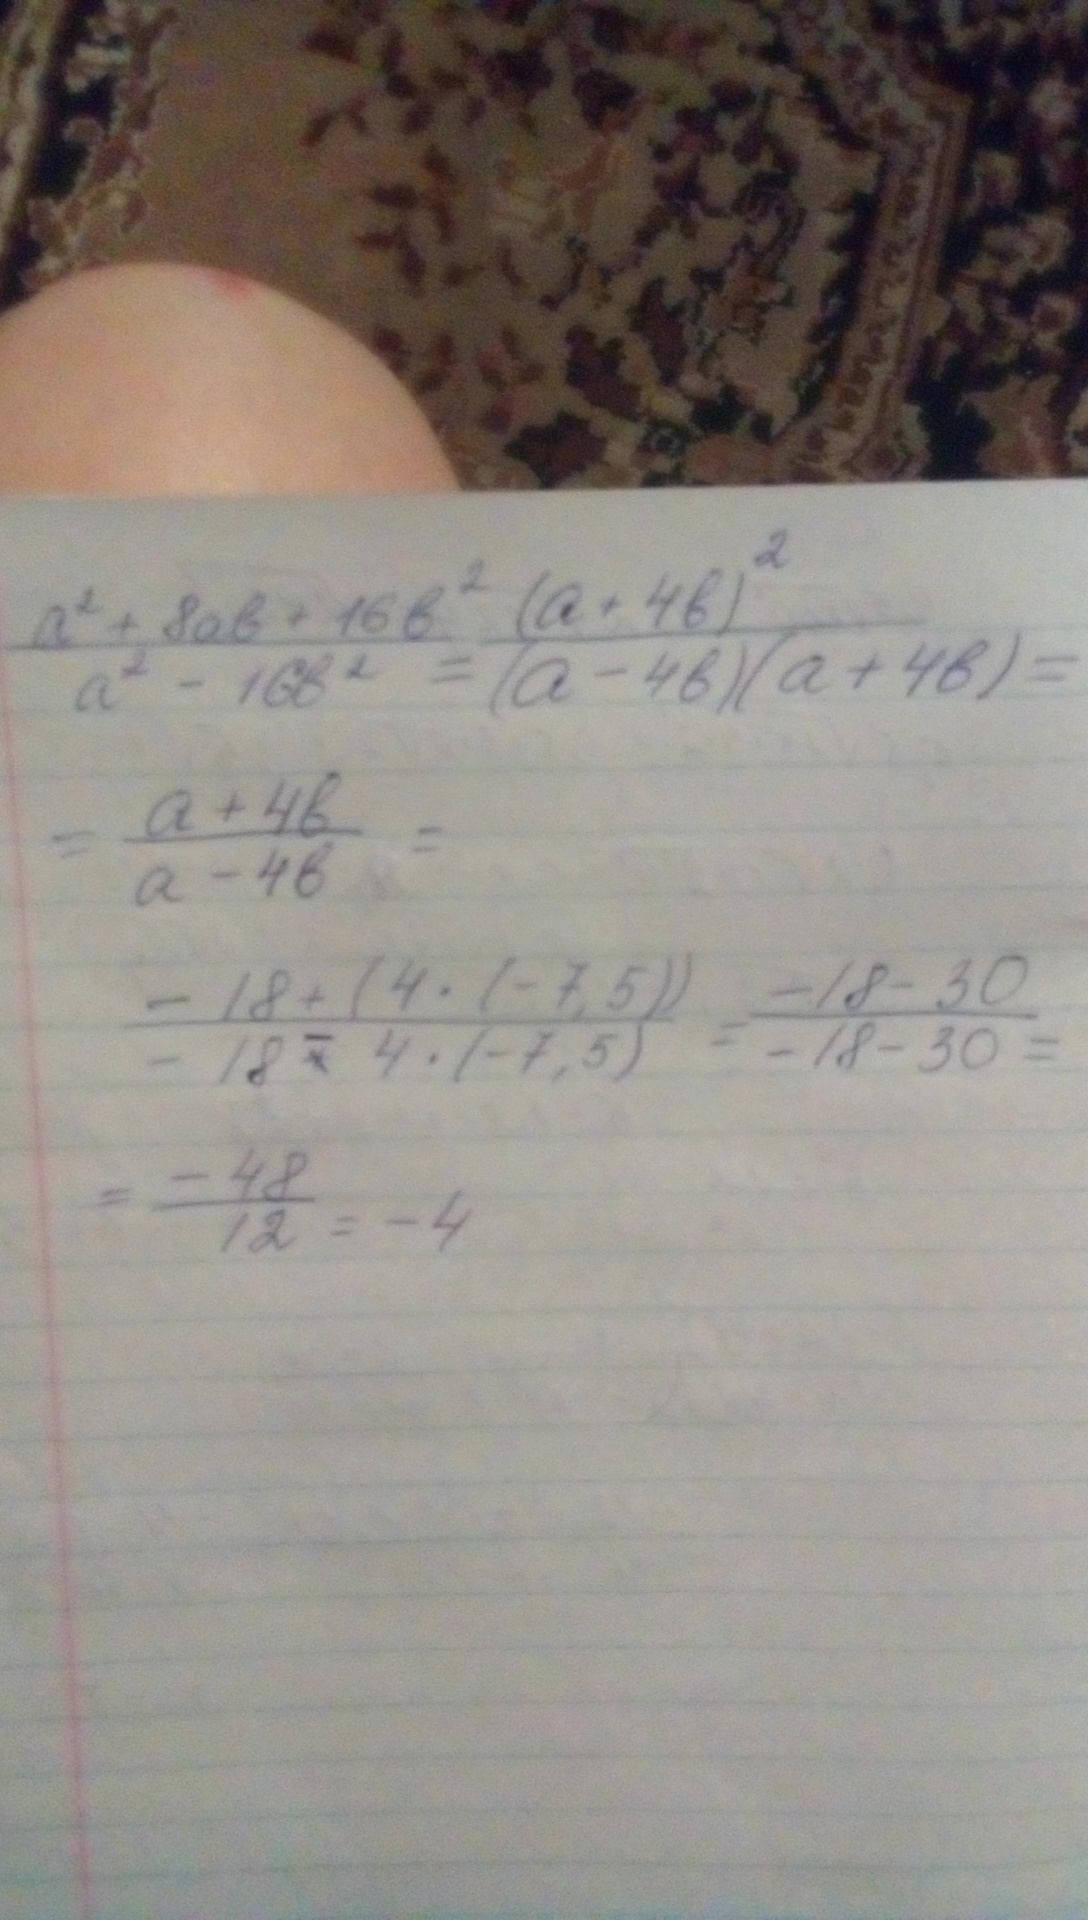 a² + 8ab + 16b² / a² - 16b² = (a + 4b)² / (a - 4b)(a + 4b) =
= a + 4b / a - 4b =
- 18 + (4 · (-7,5)) / - 18 - 4 · (-7,5) = -18 - 30 / -18 - 30 =
= -48 / 12 = -4